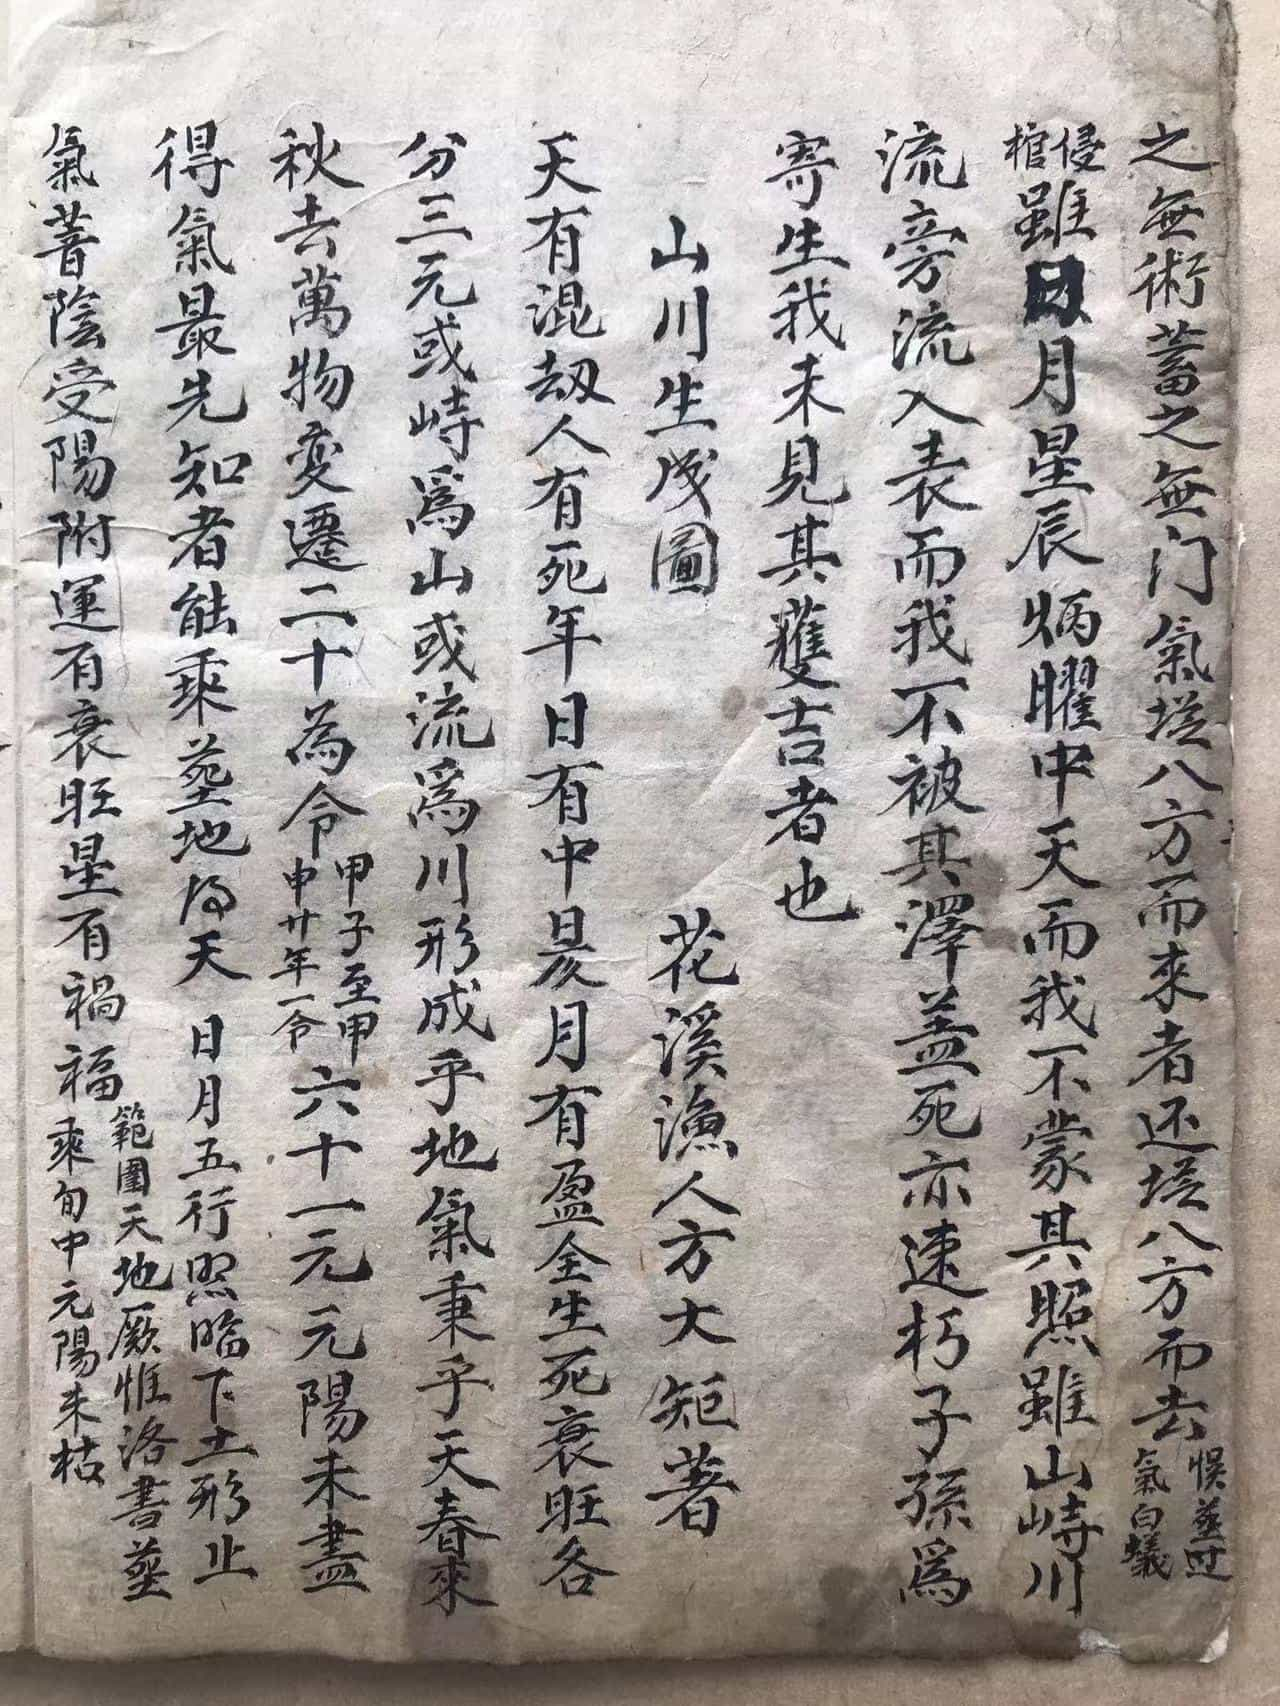 之無術蓄之無门氣塔八方而來者还塔八方而去悮塟过氣白蟻
侵棺雖日月星辰炳曜中天而我不蒙其照雖山峙川
流旁流入表而我不被其澤盖死亦速朽子孫為
寄生我未見其獲吉者也
山川生成圖 花溪漁人方大矩著
天有混劫人有死年日有中昃月有盈全生死衰旺各
分三元或峙為山或流為川形成乎地氣秉乎天春來
秋去萬物变遷二十為令甲子至甲申廿年一令六十一元元陽未盡
得氣最先知者能乘塟地得天 日月五行照臨下土形止
氣蓄陰受陽附運有衰旺星有禍福範圍天地厥惟洛書塟乘旬中元陽未枯